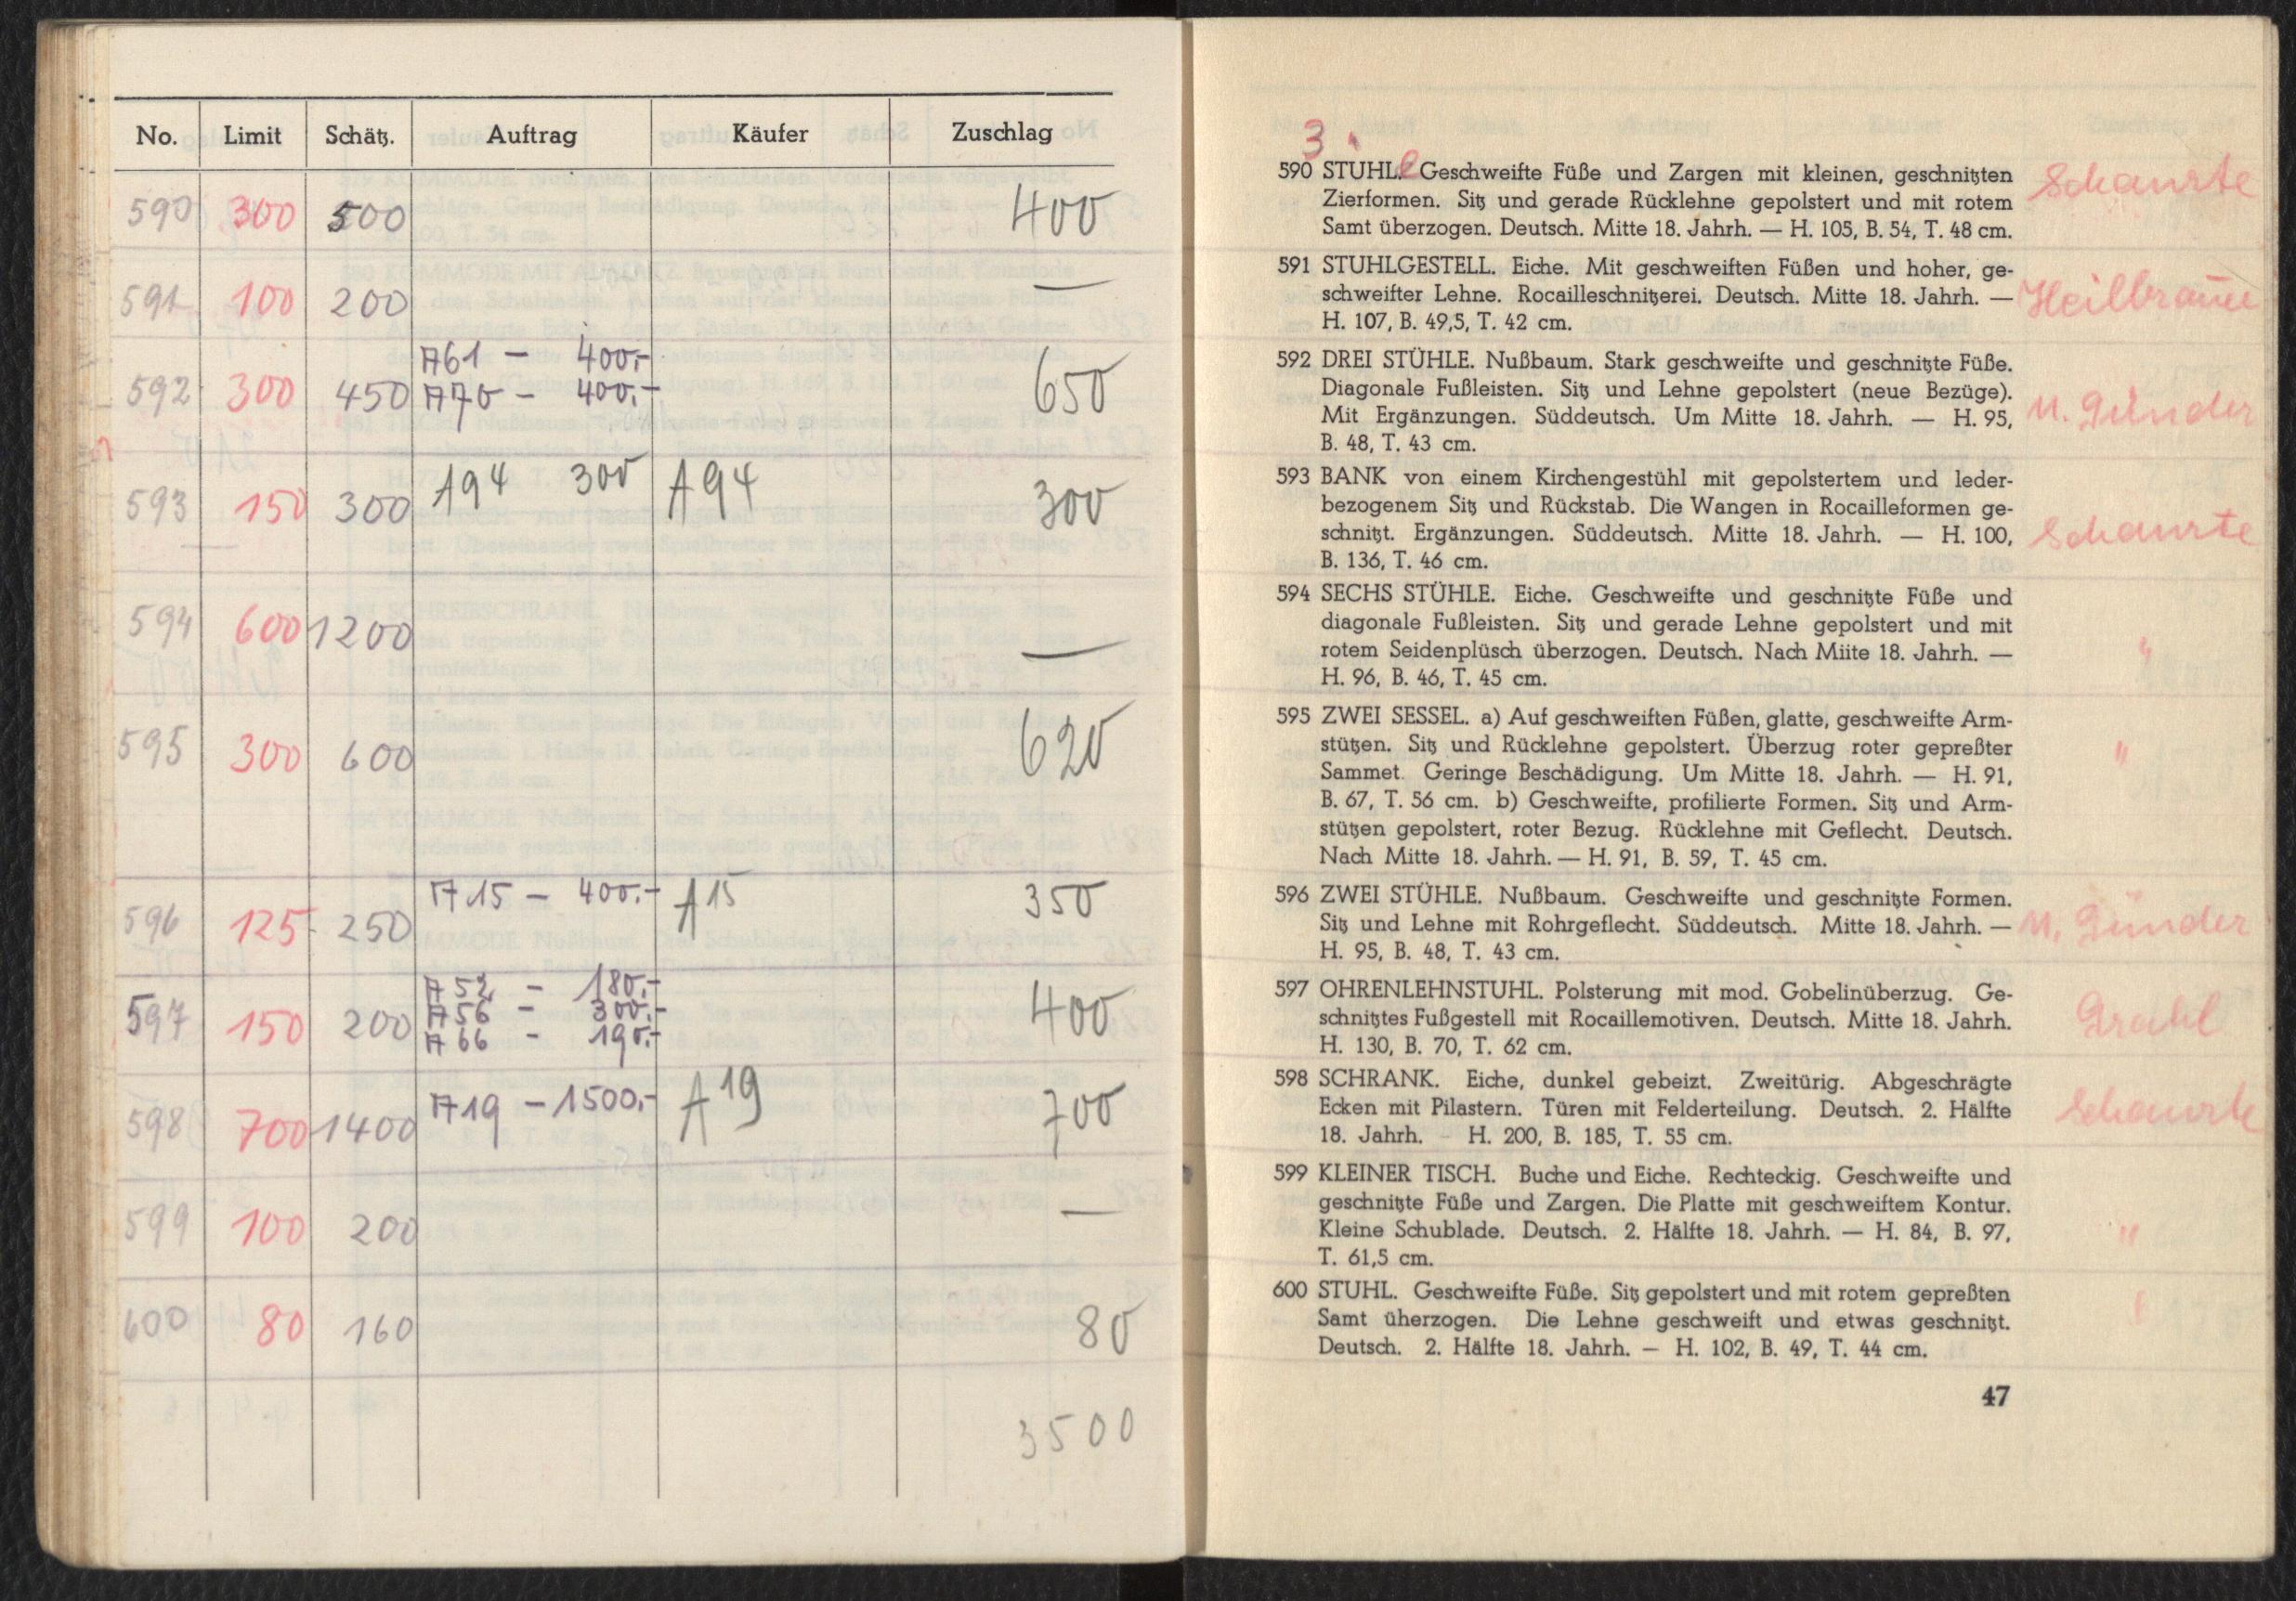 No. Limit Schätz. Auftrag Käufer Zuschlag
590 300 500 400
591 100 200 —
A61 – 400.–
592 300 450 A70 – 400.– 650
593 150 300 A94 300 A94 300
594 600 1200 —
595 300 600 620
596 125 250 A15 – 400.– A15 350
A52 – 180.–
597 150 200 A56 – 300.– 400
A66 – 190.–
598 700 1400 A19 – 1500.– A19 700
599 100 200 —
600 80 160 80
3500
3.
590 STUHLe Geschweifte Füße und Zargen mit kleinen, geschnitzten Schaurte
Zierformen. Sitz und gerade Rücklehne gepolstert und mit rotem
Samt überzogen. Deutsch. Mitte 18. Jahrh. — H. 105, B. 54, T. 48 cm.
591 STUHLGESTELL. Eiche. Mit geschweiften Füßen und hoher, ge-
schweifter Lehne. Rocailleschnitzerei. Deutsch. Mitte 18. Jahrh. — Heilbronner
H. 107, B. 49,5, T. 42 cm.
592 DREI STÜHLE. Nußbaum. Stark geschweifte und geschnitzte Füße.
Diagonale Fußleisten. Sitz und Lehne gepolstert (neue Bezüge).
Mit Ergänzungen. Süddeutsch. Um Mitte 18. Jahrh. — H. 95, M. Günder
B. 48, T. 43 cm.
593 BANK von einem Kirchengestühl mit gepolstertem und leder-
bezogenem Sitz und Rückstab. Die Wangen in Rocailleformen ge-
schnitzt. Ergänzungen. Süddeutsch. Mitte 18. Jahrh. — H. 100, Schaurte
B. 136, T. 46 cm.
594 SECHS STÜHLE. Eiche. Geschweifte und geschnitzte Füße und
diagonale Fußleisten. Sitz und gerade Lehne gepolstert und mit
rotem Seidenplüsch überzogen. Deutsch. Nach Miite 18. Jahrh. — "
H. 96, B. 46, T. 45 cm.
595 ZWEI SESSEL. a) Auf geschweiften Füßen, glatte, geschweifte Arm-
stützen. Sitz und Rücklehne gepolstert. Überzug roter gepreßter "
Sammet. Geringe Beschädigung. Um Mitte 18. Jahrh. — H. 91,
B. 67, T. 56 cm. b) Geschweifte, profilierte Formen. Sitz und Arm-
stützen gepolstert, roter Bezug. Rücklehne mit Geflecht. Deutsch.
Nach Mitte 18. Jahrh. — H. 91, B. 59, T. 45 cm.
596 ZWEI STÜHLE. Nußbaum. Geschweifte und geschnitzte Formen.
Sitz und Lehne mit Rohrgeflecht. Süddeutsch. Mitte 18. Jahrh. — M. Günder
H. 95, B. 48, T. 43 cm.
597 OHRENLEHNSTUHL. Polsterung mit mod. Gobelinüberzug. Ge-
schnitztes Fußgestell mit Rocaillemotiven. Deutsch. Mitte 18. Jahrh. Drahl
H. 130, B. 70, T. 62 cm.
598 SCHRANK. Eiche, dunkel gebeizt. Zweitürig. Abgeschrägte
Ecken mit Pilastern. Türen mit Felderteilung. Deutsch. 2. Hälfte Schaurte
18. Jahrh. – H. 200, B. 185, T. 55 cm.
599 KLEINER TISCH. Buche und Eiche. Rechteckig. Geschweifte und
geschnitzte Füße und Zargen. Die Platte mit geschweiftem Kontur.
Kleine Schublade. Deutsch. 2. Hälfte 18. Jahrh. — H. 84, B. 97, "
T. 61,5 cm.
600 STUHL. Geschweifte Füße. Sitz gepolstert und mit rotem gepreßten
Samt üherzogen. Die Lehne geschweift und etwas geschnitzt.
Deutsch. 2. Hälfte 18. Jahrh. — H. 102, B. 49, T. 44 cm.
47